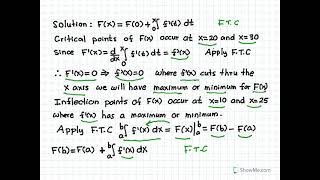 Solution: F(x) = F(0) + ∫₀ˣ f'(t) dt F.T.C
Critical points of F(x) occur at x=20 and x=80
since F'(x) = d/dx ∫₀ˣ f'(t) dt = f'(x) Apply F.T.C
∴ F'(x)=0 ⇒ f'(x)=0 where f'(x) cuts thru the
x axis we will have maximum or minimum for F(x)
Inflection points of F(x) occur at x=10 and x=25
where f'(x) has a maximum or minimum.
Apply F.T.C ∫ₐᵇ f'(x) dx = F(x)|ₐᵇ = F(b) - F(a)
F(b) = F(a) + ∫ₐᵇ f'(x) dx F.T.C
ShowMe.com